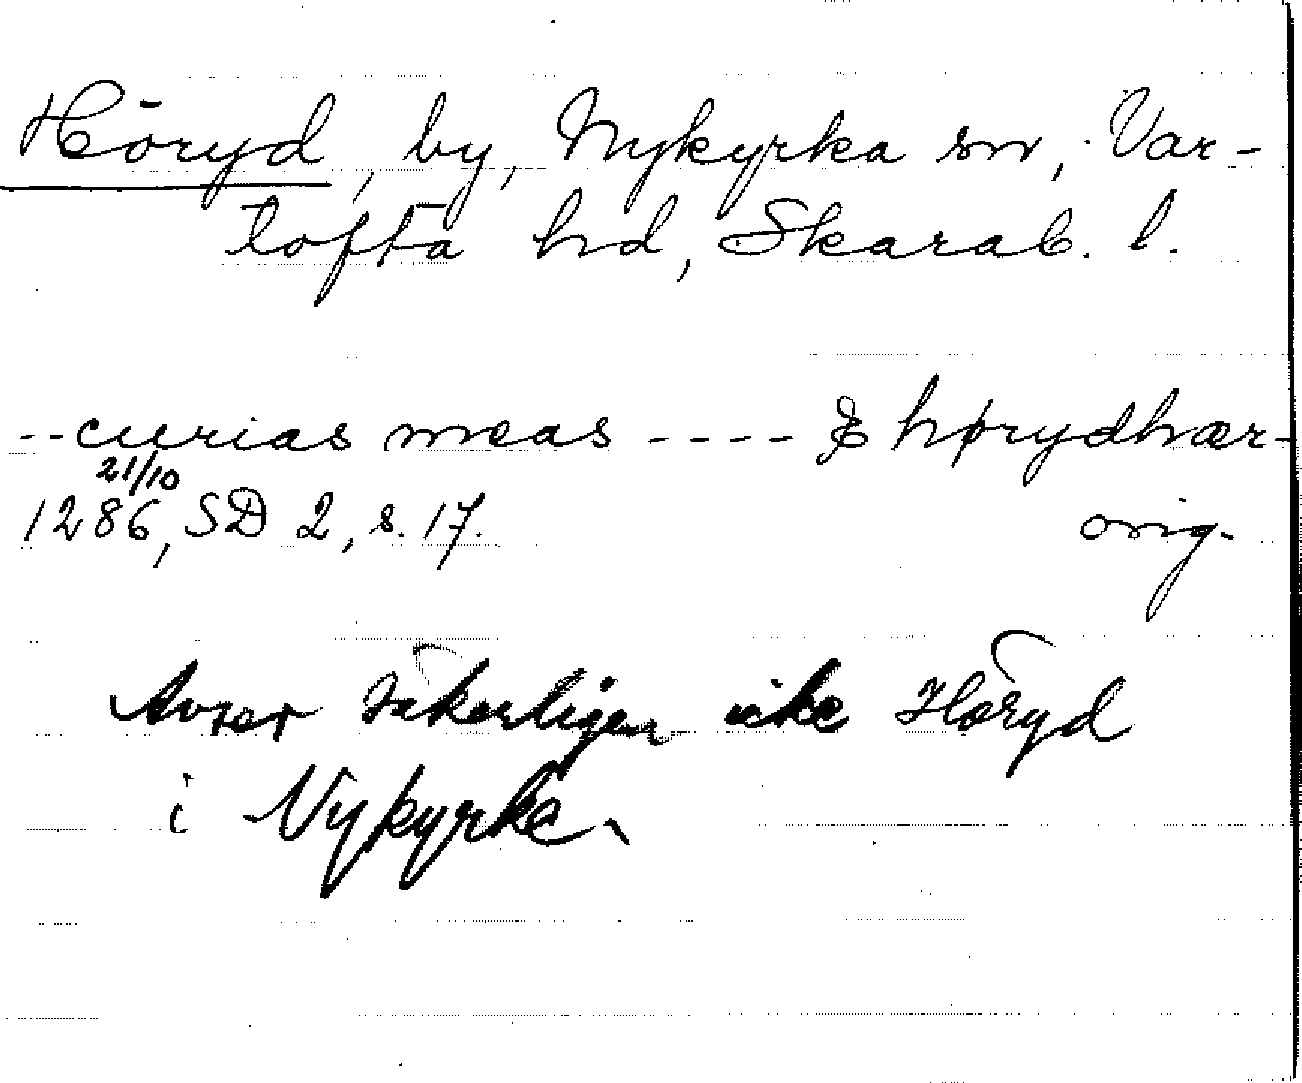 Höryd, by, Nykyrka sn, Var-
tofta hd, Skarab. l.
--curias meas ---- & hørydhær-
21/10
1286, SD 2, s. 17. orig.
Avser säkerligen icke Höryd
i Nykyrka.